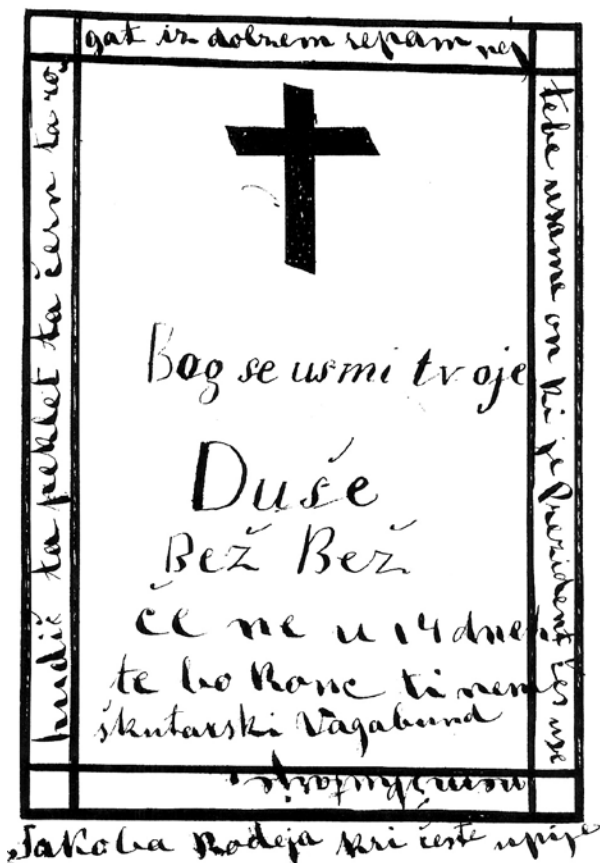 Bog se usmi tvoje
Duše
Bež Bež
če ne u 14 dneh
te bo konc ti nem
škutarski Vagabund
hudič ta peklet ta čern ta ro„
gat iz dobrem repam nej
tebe uzame on ki je Prezident čes use
nemškutarje.
„Jakoba Rodeja kri česte upije